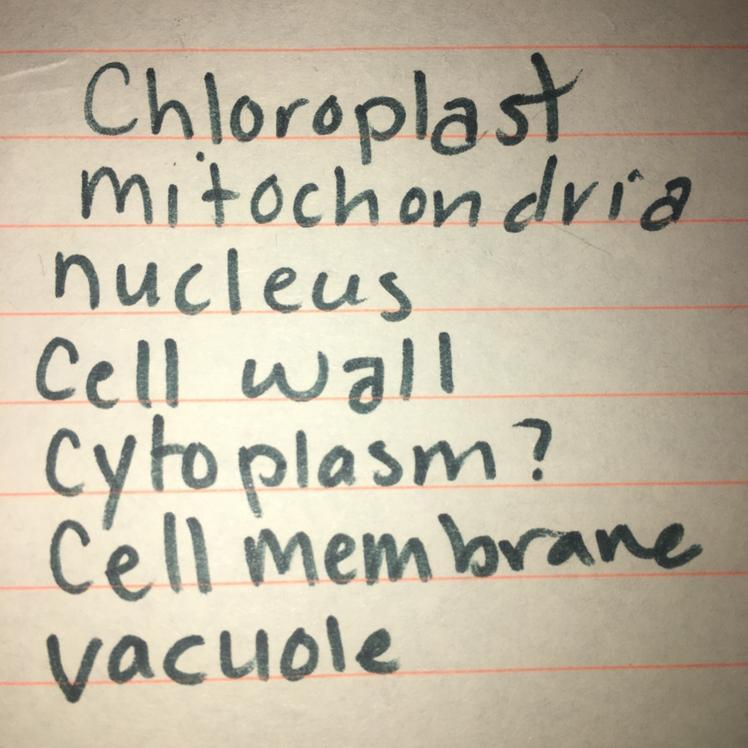 Chloroplast
mitochondria
nucleus
Cell wall
Cytoplasm?
Cell membrane
vacuole